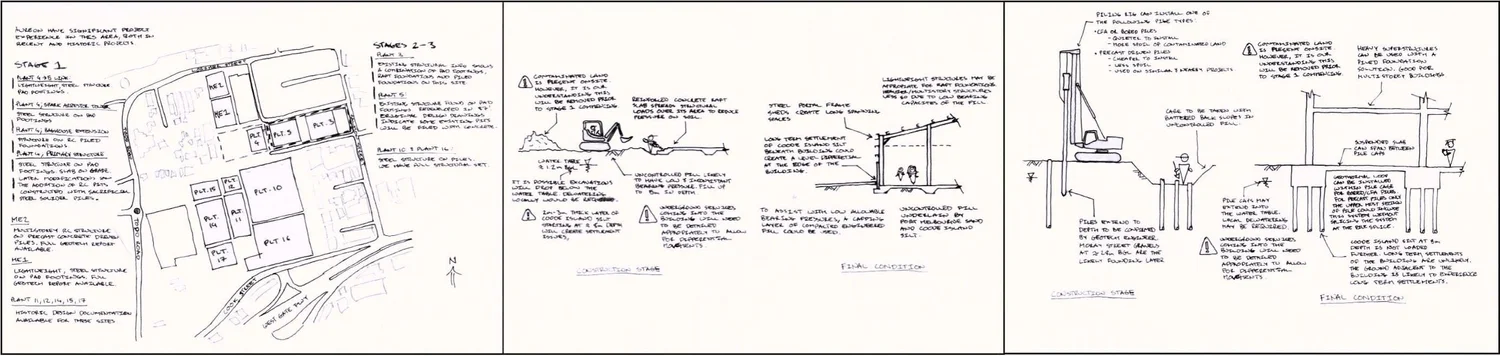 AUREON HAVE SIGNIFICANT PROJECT
EXPERIENCE IN THIS AREA, BOTH IN
RECENT AND HISTORIC PROJECTS.
STAGE 1
LIGHTWEIGHT, STEEL STRUCTURE
PAD FOOTINGS.
STEEL STRUCTURE ON PAD
FOOTINGS
PLANT 4, BAGHOUSE EXTENSION
STRUCTURE ON RC PILED
FOUNDATIONS
PLANT 4, PRIMARY STRUCTURE
STEEL STRUCTURE ON PAD
FOOTINGS. SLAB ON GRADE.
LATER MODIFICATIONS SAW
THE ADDITION OF RC PITS
CONSTRUCTED WITH SACRIFICIAL
STEEL SOLDIER PILES.
ME2
MULTISTOREY RC STRUCTURE
ON PRECAST CONCRETE DRIVEN
PILES. FULL GEOTECH REPORT
AVAILABLE.
ME1
LIGHTWEIGHT, STEEL STRUCTURE
ON PAD FOOTINGS. FULL
GEOTECH REPORT AVAILABLE.
PLANT 11, 12, 14, 15, 17
HISTORIC DESIGN DOCUMENTATION
AVAILABLE FOR THESE SITES
ME2
ME1
PLT 4
PLT. 5
PLT. 3
PLT. 15
PLT 12
PLT. 10
PLT. 14
PLT 11
PLT 17
PLT 16
COOK STREET
WEST GATE FWY
N
STAGES 2-3
PLANT 3
EXISTING STRUCTURAL INFO SHOWS
A COMBINATION OF PAD FOOTINGS,
RAFT FOUNDATION AND PILED
FOUNDATIONS ON THIS SITE
PLANT 5
EXISTING STRUCTURE FOUND ON PAD
FOOTINGS. REDEVELOPED IN
ORIGINAL DESIGN DRAWINGS
INDICATE SOME EXISTING PITS
WILL BE FILLED WITH CONCRETE.
PLANT 10 & PLANT 16
STEEL STRUCTURE ON PILES.
WE HAVE FULL STRUCTURAL SET.
CONTAMINATED LAND
IS PRESENT ONSITE
HOWEVER, IT IS OUR
UNDERSTANDING THIS
WILL BE REMOVED PRIOR
TO STAGE 1 COMMENCING
REINFORCED CONCRETE RAFT
SLAB SPREADS STRUCTURAL
LOADS OVER ITS AREA TO REDUCE
PRESSURE ON SOIL.
WATER TABLE
@ 1.2m
IT IS POSSIBLE EXCAVATIONS
WILL DROP BELOW THE
WATER TABLE. DEWATERING
LOCALLY WOULD BE
UNCONTROLLED FILL LIKELY
TO HAVE LOW & INCONSISTENT
BEARING PRESSURE. FILL UP
TO 2m IN DEPTH
2m-3m THICK LAYER OF
COODE ISLAND SILT
STARTING AT 8m DEPTH
WILL CREATE SETTLEMENT
ISSUES.
UNDERGROUND SERVICES
COMING INTO THE
BUILDING WILL NEED
TO BE DETAILED
APPROPRIATELY TO ALLOW
FOR DIFFERENTIAL
MOVEMENTS
CONSTRUCTION STAGE
STEEL PORTAL FRAME
SHEDS CREATE LONG SPANNING
SPACES
LIGHTWEIGHT STRUCTURES MAY BE
APPROPRIATE FOR RAFT FOUNDATIONS.
HEAVIER/MULTISTORY STRUCTURES
LESS SO DUE TO LOW BEARING
CAPACITIES OF THE FILL
LONG TERM SETTLEMENT
OF COODE ISLAND SILT
BENEATH BUILDING COULD
CREATE A LEVEL DIFFERENTIAL
AT THE EDGE OF THE
BUILDING.
TO ASSIST WITH LOW ALLOWABLE
BEARING PRESSURES, A CAPPING
LAYER OF COMPACTED ENGINEERED
FILL COULD BE USED.
UNCONTROLLED FILL
UNDERLAIN BY
PORT MELBOURNE SAND
AND COODE ISLAND
SILT.
FINAL CONDITION
PILING RIG CAN INSTALL ONE OF
THE FOLLOWING PILE TYPES:
• CFA OR BORED PILES
- QUIETER TO INSTALL
- MORE SPOIL OF CONTAMINATED LAND
• PRECAST DRIVEN PILES
- CHEAPER TO INSTALL
- LESS SPOIL
- USED ON SIMILAR & NEARBY PROJECTS
CONTAMINATED LAND
IS PRESENT ONSITE
HOWEVER, IT IS OUR
UNDERSTANDING THIS
WILL BE REMOVED PRIOR
TO STAGE 1 COMMENCING
HEAVY SUPERSTRUCTURES
CAN BE USED WITH A
PILED FOUNDATION
SOLUTION. GOOD FOR
MULTISTORY BUILDINGS
CARE TO BE TAKEN WITH
BATTERED BACK SLOPES IN
UNCONTROLLED FILL.
SUSPENDED SLAB
CAN SPAN BETWEEN
PILE CAPS
GEOTHERMAL LOOP
CAN BE INSTALLED
WITHIN PILE CAGE
FOR BORED/CFA PILES.
FOR PRECAST PILES ONLY
THE UPPER MOST SECTION
OF PILE COULD INCLUDE
THIS SYSTEM WITHOUT
SPLICING THE SYSTEM
AT THE PILE SPLICE.
PILES EXTEND TO
DEPTH TO BE CONFIRMED
BY GEOTECH ENGINEER.
MORAY STREET GRAVELS
AT 30m BGL ARE THE
LIKELY FOUNDING LAYER
PILE CAPS MAY
EXTEND INTO THE
WATER TABLE.
LOCAL DEWATERING
MAY BE REQUIRED.
UNDERGROUND SERVICES
COMING INTO THE
BUILDING WILL NEED
TO BE DETAILED
APPROPRIATELY TO ALLOW
FOR DIFFERENTIAL
MOVEMENTS
COODE ISLAND SILT AT 8m
DEPTH IS NOT LOADED
FURTHER. LONG TERM SETTLEMENTS
OF THE BUILDING ARE UNLIKELY.
THE GROUND ADJACENT TO THE
BUILDING IS LIKELY TO EXPERIENCE
LONG TERM SETTLEMENTS.
CONSTRUCTION STAGE
FINAL CONDITION